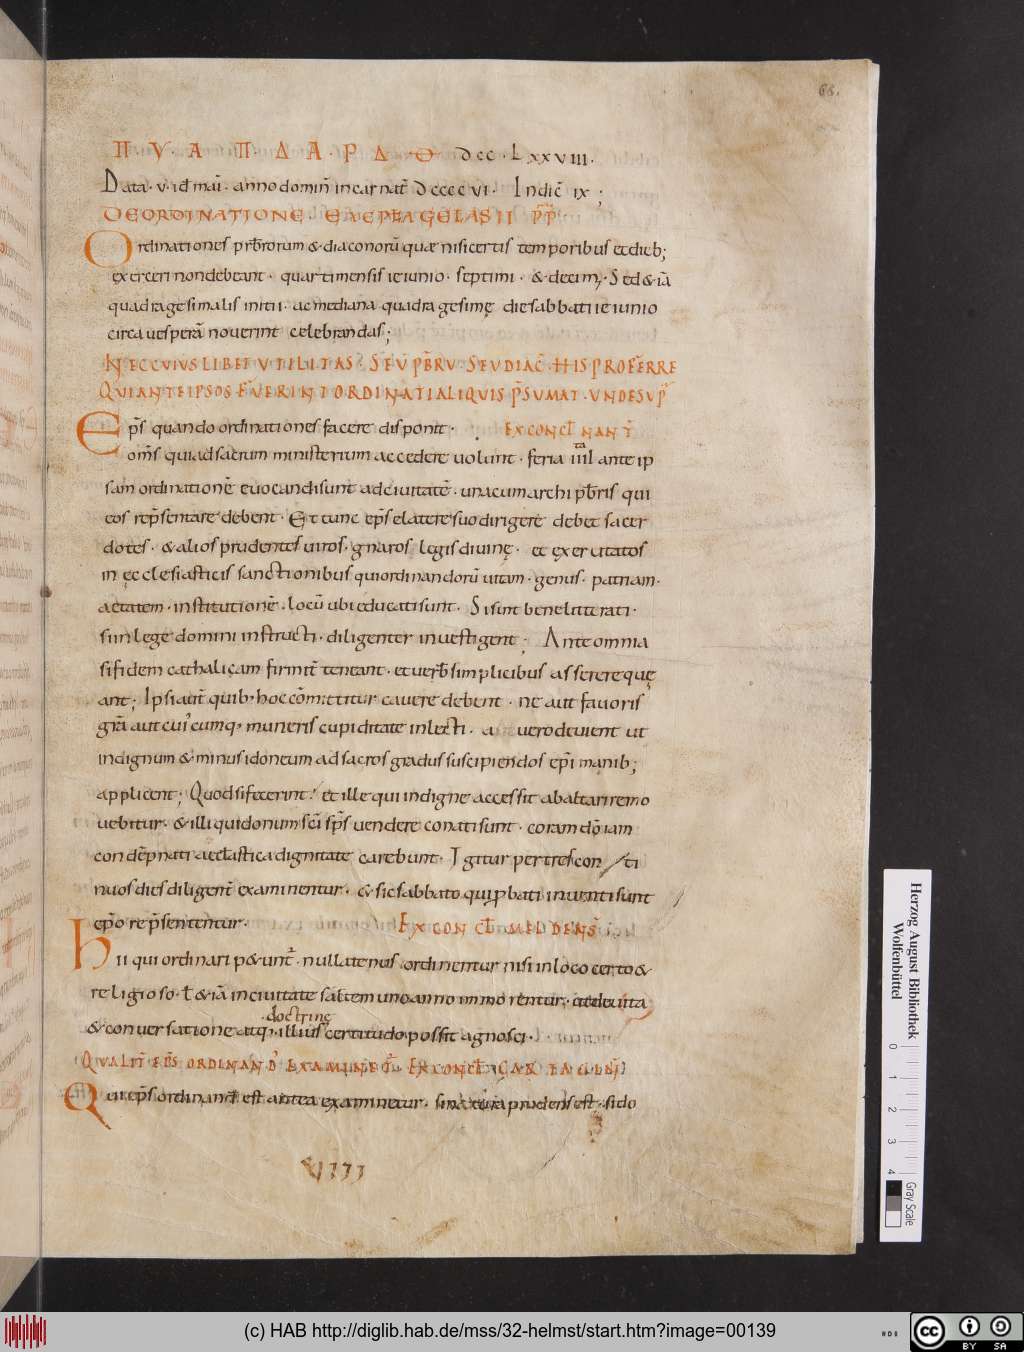 66.
Π · Υ · Α · Π · Δ · Α · Ρ · Δ · Θ · Dcc · Lxxviii.
Data · v · id mai · anno domin̄ incarnat̄ Dccccvi · Indic̄ ix ;
DE ORDINATIONE · EX EPLA GELASII PP
Ordinationes prb̄rorum & diaconorū quæ nisi certis temporibus et dieb;
exerceri non debeant · quarti mensis ieiunio · septimi · & decimi · Sed & iā
quadragesimalis initii · ac mediana quadragesimę die sabbati ieiunio
circa uesperā nouerint celebrandas ;
NEC CVIVSLIBET VTILITAS · SEV PB̄RV · SEV DIAC̄ · HIS PROFERRE
QVI ANTE IPSOS FVERINT ORDINATI ALIQVIS P̄SVMAT ·
Ep̄s quando ordinationes facere disponit · EX CONCL̄ NANT̄
om̄s qui ad sacrum ministerium accedere uolunt · feria iiii ante ip
sam ordinationē euocandi sunt ad ciuitatē · una cum archi pb̄ris qui
eos rep̄sentare debent · Et tunc ep̄s e latere suo dirigere debet sacer
dotes · & alios prudentes uiros · gnaros legis diuinę · et exercitatos
in ęcclesiasticis sanctionibus qui ordinandorū uitam · genus · patriam ·
aetatem · institutionē · locū ubi educati sunt · Si sint bene litterati ·
si in lege domini instructi · diligenter inuestigent ; Ante omnia
si fidem catholicam firmit̄ teneant · et uerb̄ simplicibus asserere quę
ant ; Ipsi aut̄ quib; hoc cōmittitur cauere debent · ne aut fauoris
gr̄a aut cuicumq; muneris cupiditate inlecti · a uero deuient ut
indignum & minus idoneum ad sacros gradus suscipiendos ep̄i manib;
applicent ; Quod si fecerint · et ille qui indigne accessit ab altari remo
uebitur · & illi qui donum sc̄i sp̄s uendere conati sunt · coram dō iam
condēpnati aecclastica dignitate carebunt · Igitur per tres con ti
nuos dies diligent̄ examinentur · & sic sabbato qui pbati inuenti sunt
ep̄o rep̄sententur · EX CON CL̄ MELDENS̄
Hii qui ordinari p&unt̄ · nullatenus ordinentur nisi in loco certo &
religioso · t̄ & iā in ciuitate saltem uno anno immorentur · ut de uita
·doctrinę
& conuersatione atq; illius certitudo possit agnosci ·
QVALIT̄ EP̄S ORDINAND̄ EXAMINET̄
Qui ep̄s ordinand̄ est antea examinetur · si natura prudens est · si do
VIIII
Herzog August Bibliothek
Wolfenbüttel
0 1 2 3 4
Gray Scale
(c) HAB http://diglib.hab.de/mss/32-helmst/start.htm?image=00139
cc BY SA